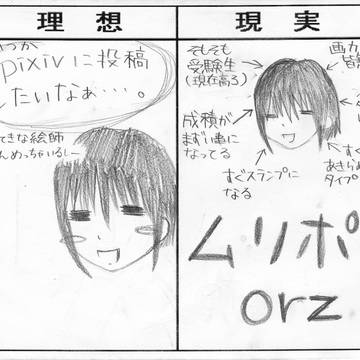 理想
現実
いつか
pixivに投稿
したいなぁ・・・・。
てきな絵師
んめっちゃいるしー
そもそも
受験生
(現在高3)
成績が
まずい事に
なってる
すぐスランプに
なる
画力
皆
すぐ
あきらめ
タイプ
ムリポ
orz